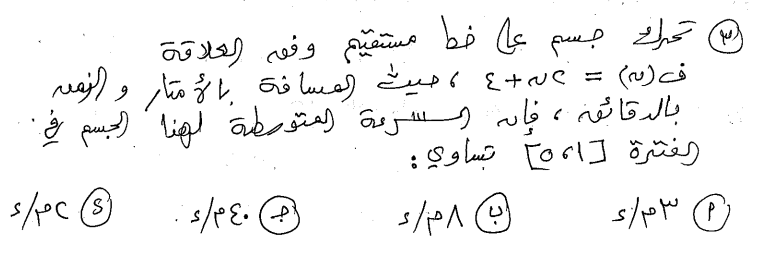 ٣) تحرك جسم على خط مستقيم وفق العلاقة
ف(ن) = ٢ن + ٤ ، حيث المسافة بالأمتار والزمن
بالدقائق ، فإن السرعة المتوسطة لهذا الجسم في
الفترة [١،٥] تساوي :
أ) ٣م/د ب) ٨م/د ج) ٤٠م/د د) ٢م/د